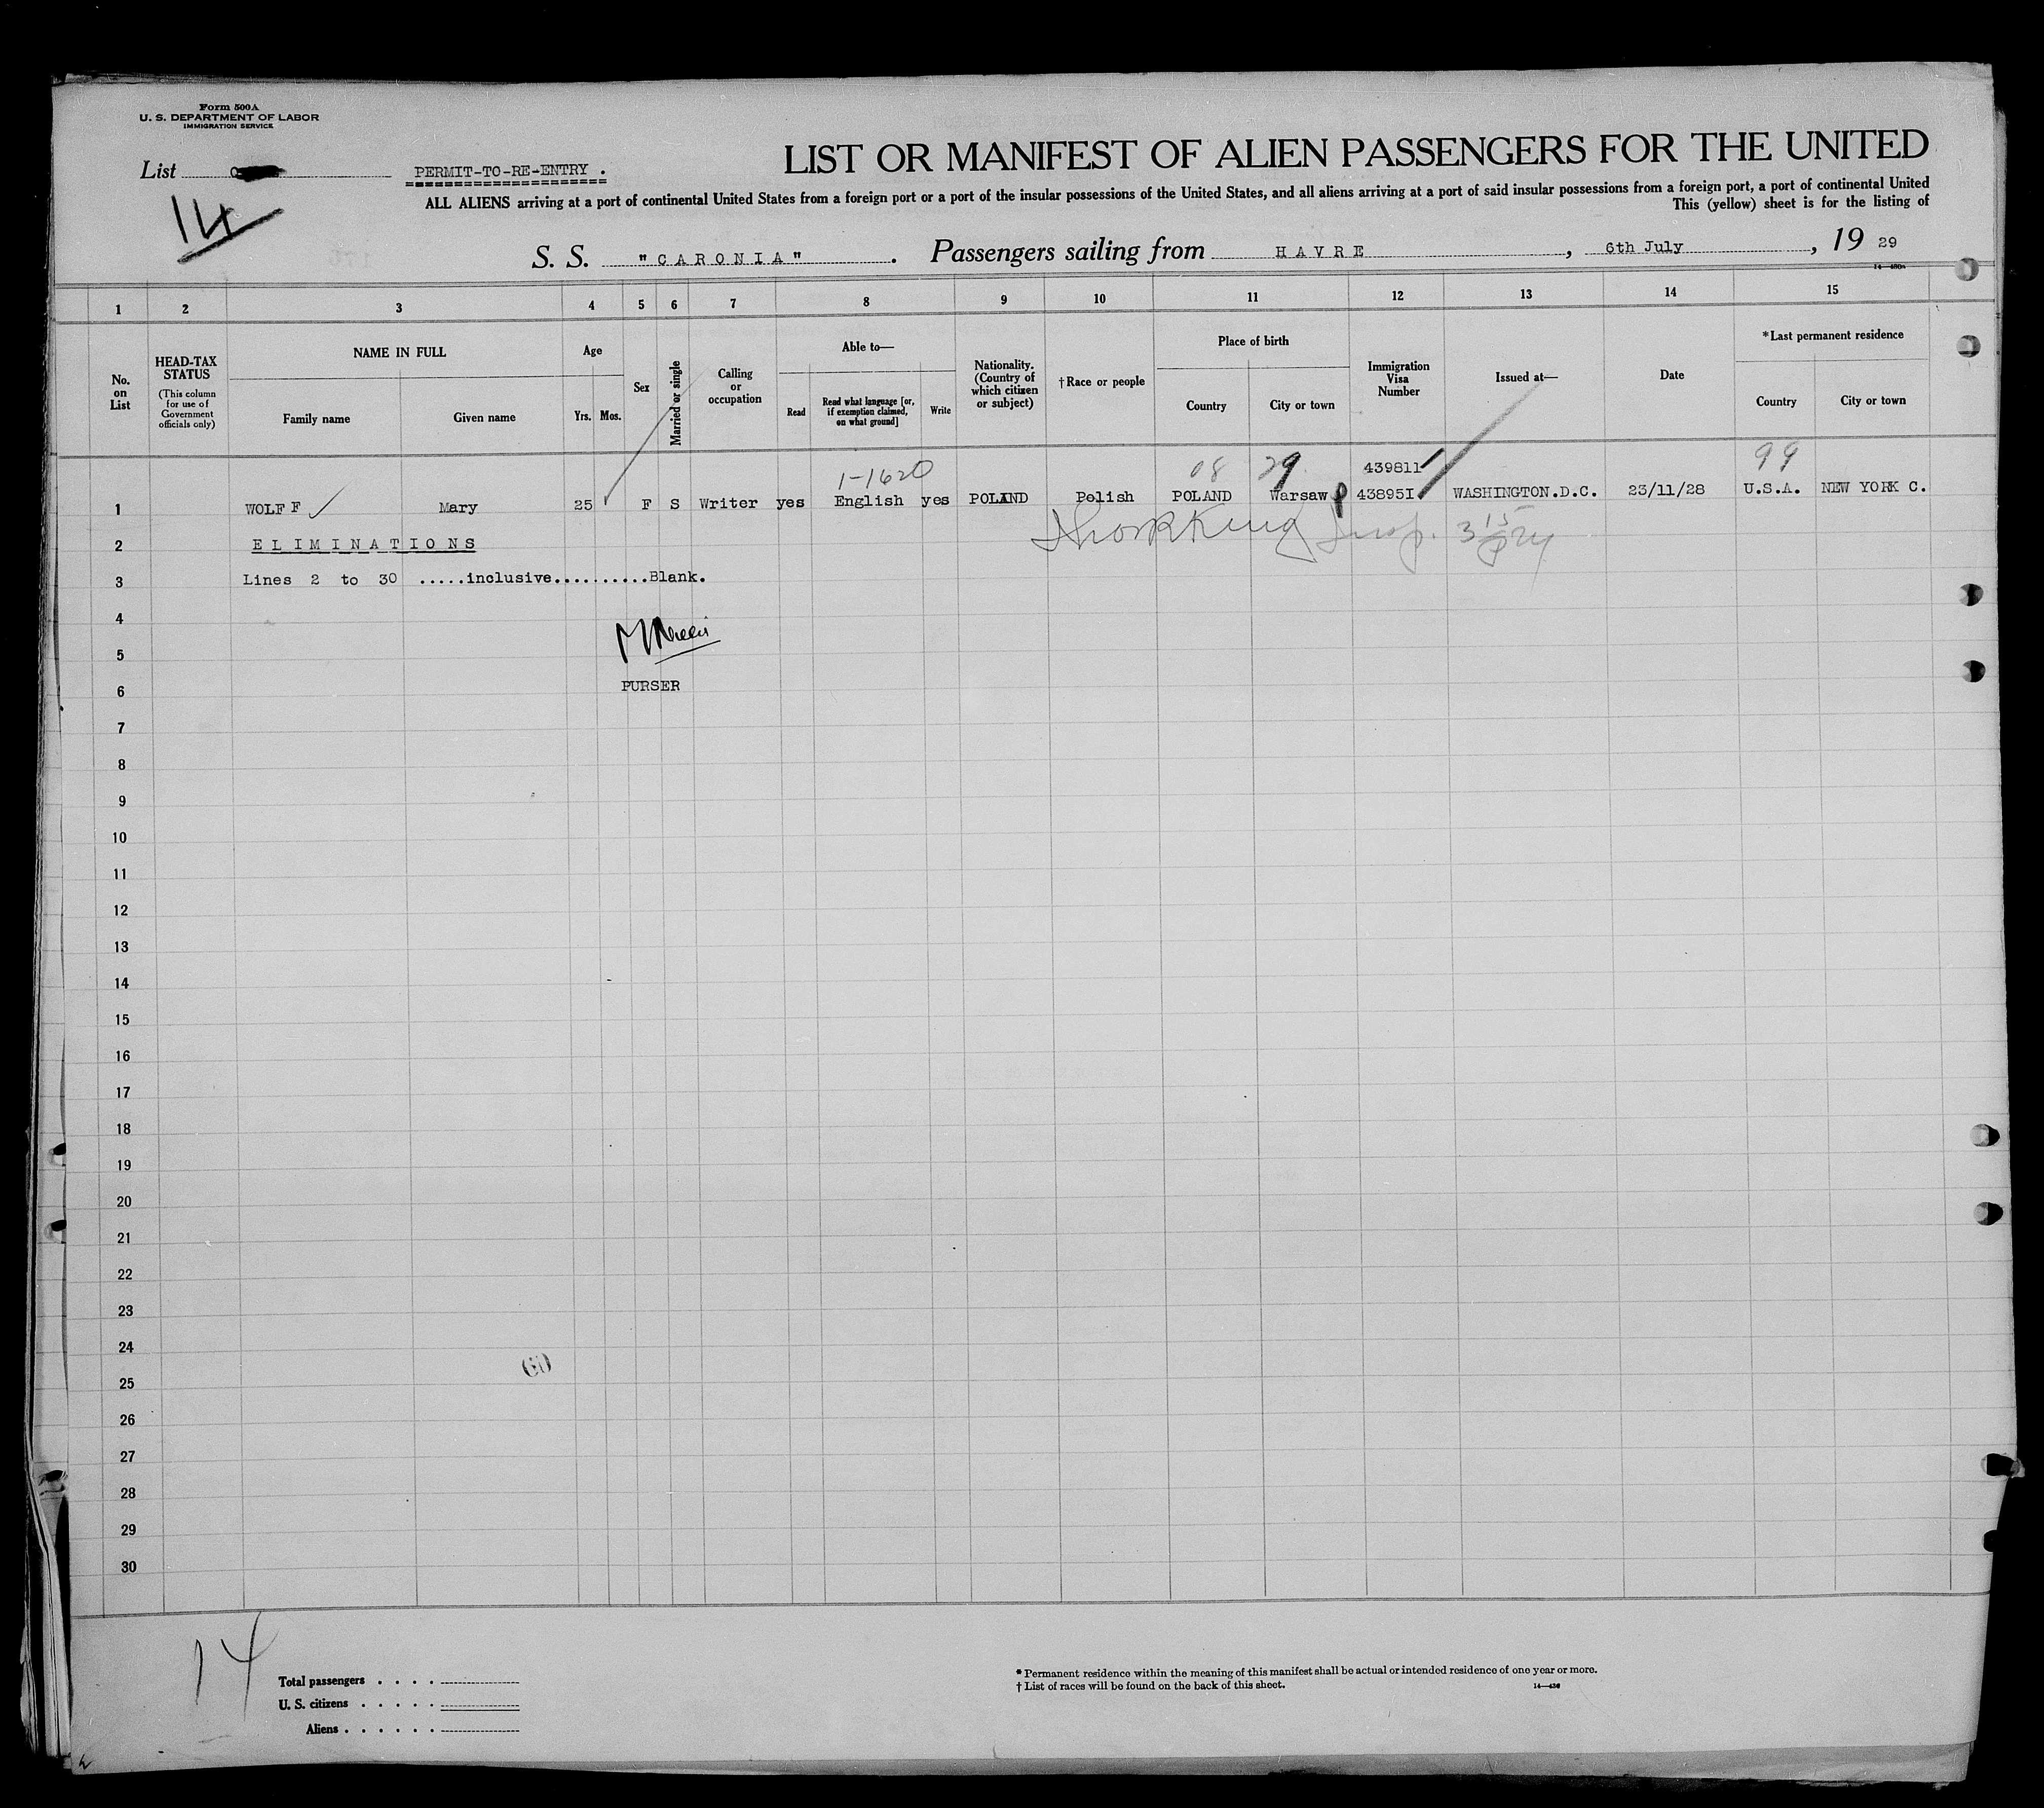 Form 500A
U. S. DEPARTMENT OF LABOR
IMMIGRATION SERVICE
List
PERMIT-TO-RE-ENTRY .
14
LIST OR MANIFEST OF ALIEN PASSENGERS FOR THE UNITED
ALL ALIENS arriving at a port of continental United States from a foreign port or a port of the insular possessions of the United States, and all aliens arriving at a port of said insular possessions from a foreign port, a port of continental United
This (yellow) sheet is for the listing of
S. S. "CARONIA" . Passengers sailing from HAVRE , 6th July , 19 29
1 2 3 4 5 6 7 8 9 10 11 12 13 14 15
No. on List
HEAD-TAX STATUS
(This column for use of Government officials only)
NAME IN FULL
Family name
Given name
Age
Yrs.
Mos.
Sex
Married or single
Calling or occupation
Able to—
Read
Read what language [or, if exemption claimed, on what ground]
Write
Nationality. (Country of which citizen or subject)
†Race or people
Place of birth
Country
City or town
Immigration Visa Number
Issued at—
Date
*Last permanent residence
Country
City or town
1-1620 08 29 439811 99
1 WOLFF Mary 25 F S Writer yes English yes POLAND Polish POLAND Warsaw 43895I WASHINGTON.D.C. 23/11/28 U.S.A. NEW YORK C.
2 ELIMINATIONS
3 Lines 2 to 30 .....inclusive..........Blank.
4
5
6 PURSER
7
8
9
10
11
12
13
14
15
16
17
18
19
20
21
22
23
24
60
25
26
27
28
29
30
14
Total passengers . . . .
U. S. citizens . . . . .
Aliens . . . . . .
* Permanent residence within the meaning of this manifest shall be actual or intended residence of one year or more.
† List of races will be found on the back of this sheet.